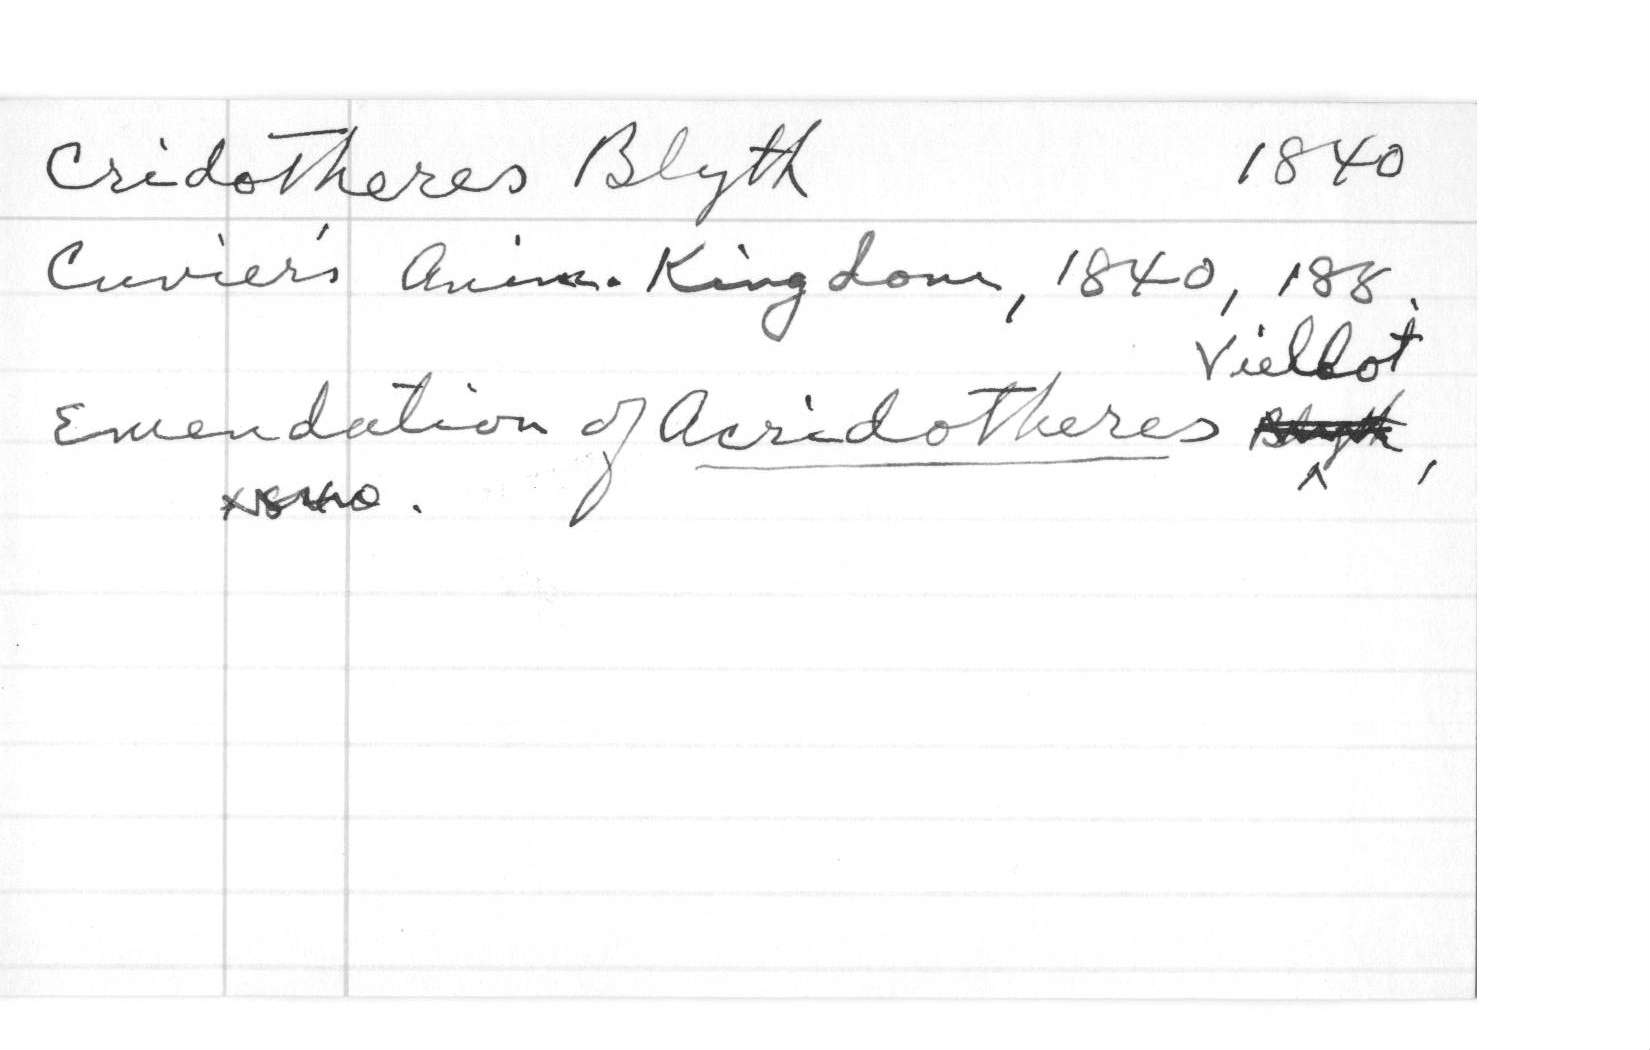 Cridotheres Blyth 1840
Cuvier's Anim. Kingdom, 1840, 188.
Viellot
Emendation of Acridotheres Blyth,
1840.